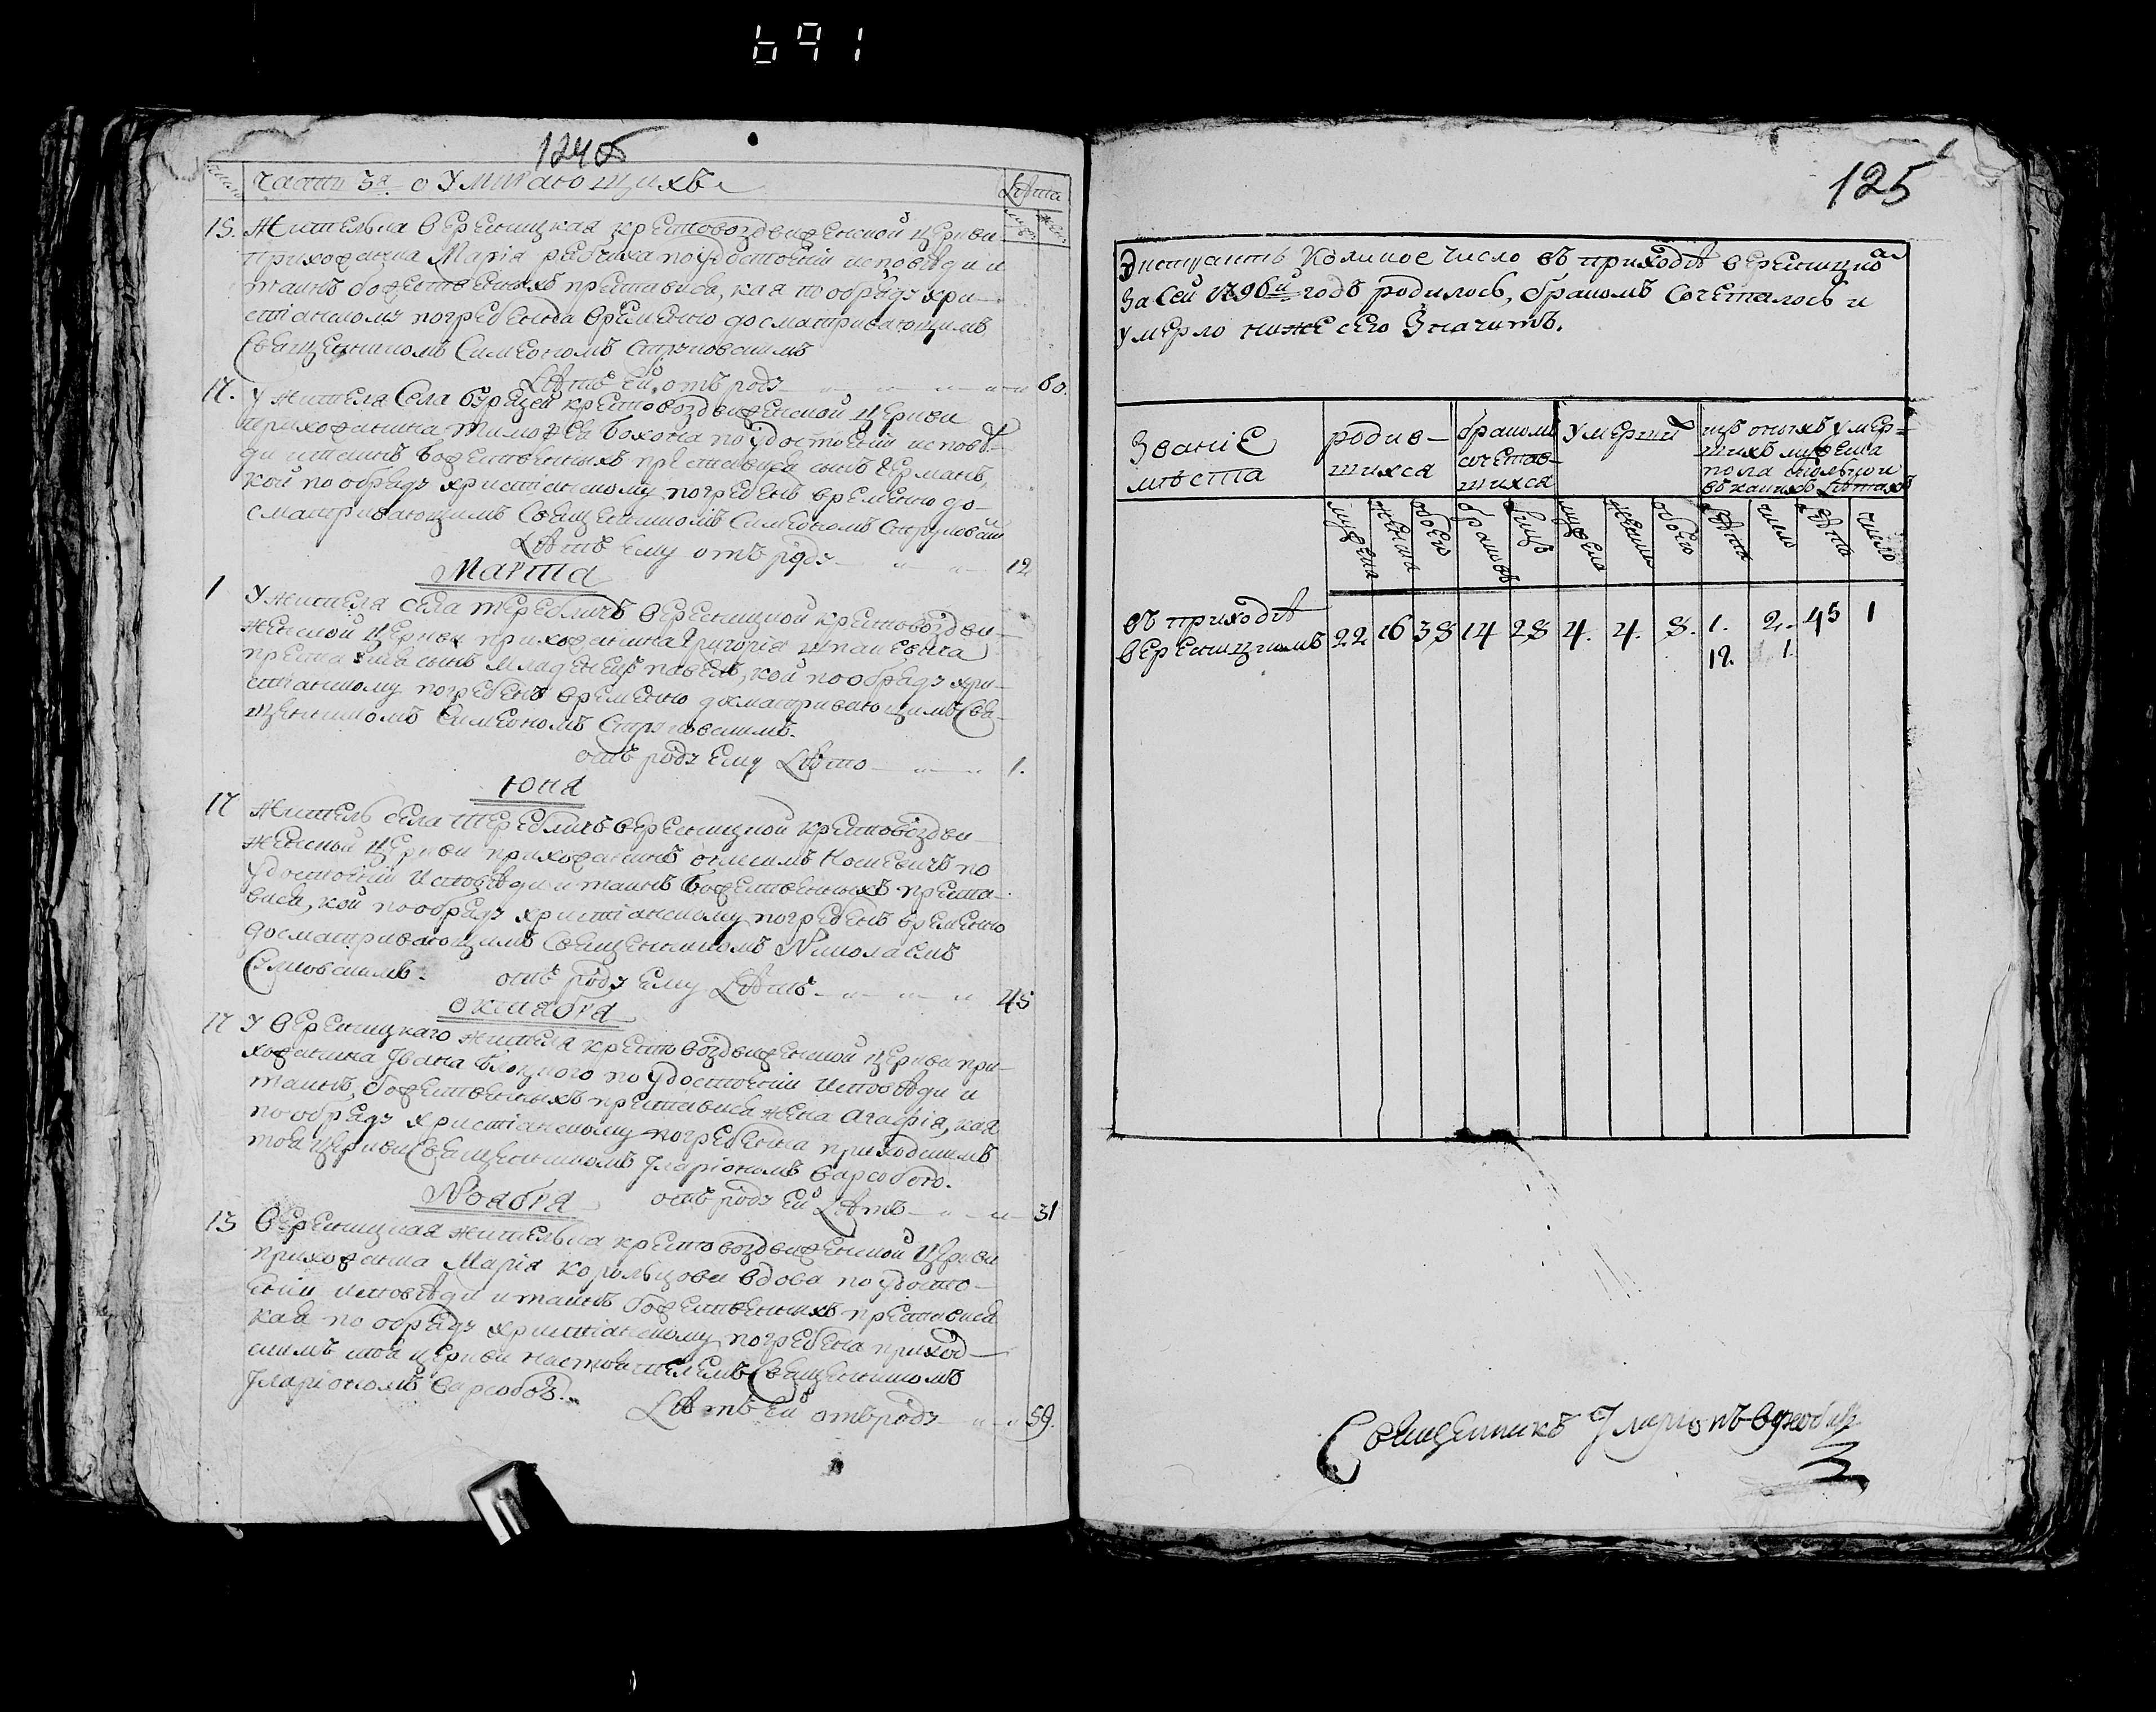 691
124об
части 3я о умирающихъ
Лѣта
15. Жителька Вересницкая крестовоздвиженской церкви
прихожанка Марія по удостоеніи исповѣди и
таинъ божественныхъ преставися, кая по обряду хри-
стіанскому погребенна временно досматривающимъ
священникомъ Симеономъ Струковскимъ
Лѣтъ ей отъ роду 60.
17. У жителя Села крестовоздвиженской церкви
прихожанина Тимоѳея Бохона по удостоеніи исповѣ-
ди и таинъ божественныхъ преставися сынъ Германъ,
кой по обряду христіанскому погребенъ временно до-
сматривающимъ священникомъ Симеономъ
Лѣтъ ему отъ роду 12
Марта
1 У жителя села Теребличъ Вересницкой крестовоздви-
женской церкви прихожанина Григорія
преставися сынъ младенецъ Павелъ, кой по обряду хри-
стіанскому погребенъ временно досматривающимъ свя-
щенникомъ Симеономъ Струковскимъ.
отъ роду ему Лѣто 1.
Юня
17 Житель села Теребличъ Вересницкой крестовоздви-
женской церкви прихожанинъ по
удостоеніи исповѣди и таинъ божественныхъ преста-
вися, кой по обряду христіанскому погребенъ временно
досматривающимъ священникомъ Николаемъ
отъ роду ему Лѣтъ 45
октября
17 У Вересницкаго жителя крестовоздвиженской церкви при-
хожанина Ивана по удостоеніи исповѣди и
таинъ божественныхъ преставися жена Агафія, кая
по обряду христіанскому погребенна приходскимъ
тоя церкви священникомъ Іларіономъ Варсобою.
отъ роду ей Лѣтъ 31
Ноября
13 Вересницкая жителька крестовоздвиженской церкви
прихожанка Марія вдова по удосто-
еніи исповѣди и таинъ божественныхъ преставися
кая по обряду христіанскому погребена приход-
скимъ тоя церкви настоятелемъ священникомъ
Іларіономъ
Лѣтъ ей отъ роду 59.
125
Экстрактъ Коликое число въ приходѣ Вересницко
За Сей 1796й годъ родилось, бракомъ сочеталось и
умерло ниже сего Значитъ.
Званіе мѣста
родив-шихся
бракомъ сочетав-шихся
умершій
изъ оныхъ умер-шихъ мужеска пола сколько и въ какихъ Лѣтахъ
мужеска женска обоего браковъ лицъ мужеска женска обоего Лѣта число Лѣта число
въ приходѣ
Вересницкомъ 22 16 38 14 28 4. 4. 8. 1. 2. 45 1
12. 1.
Священникъ Іларіонъ